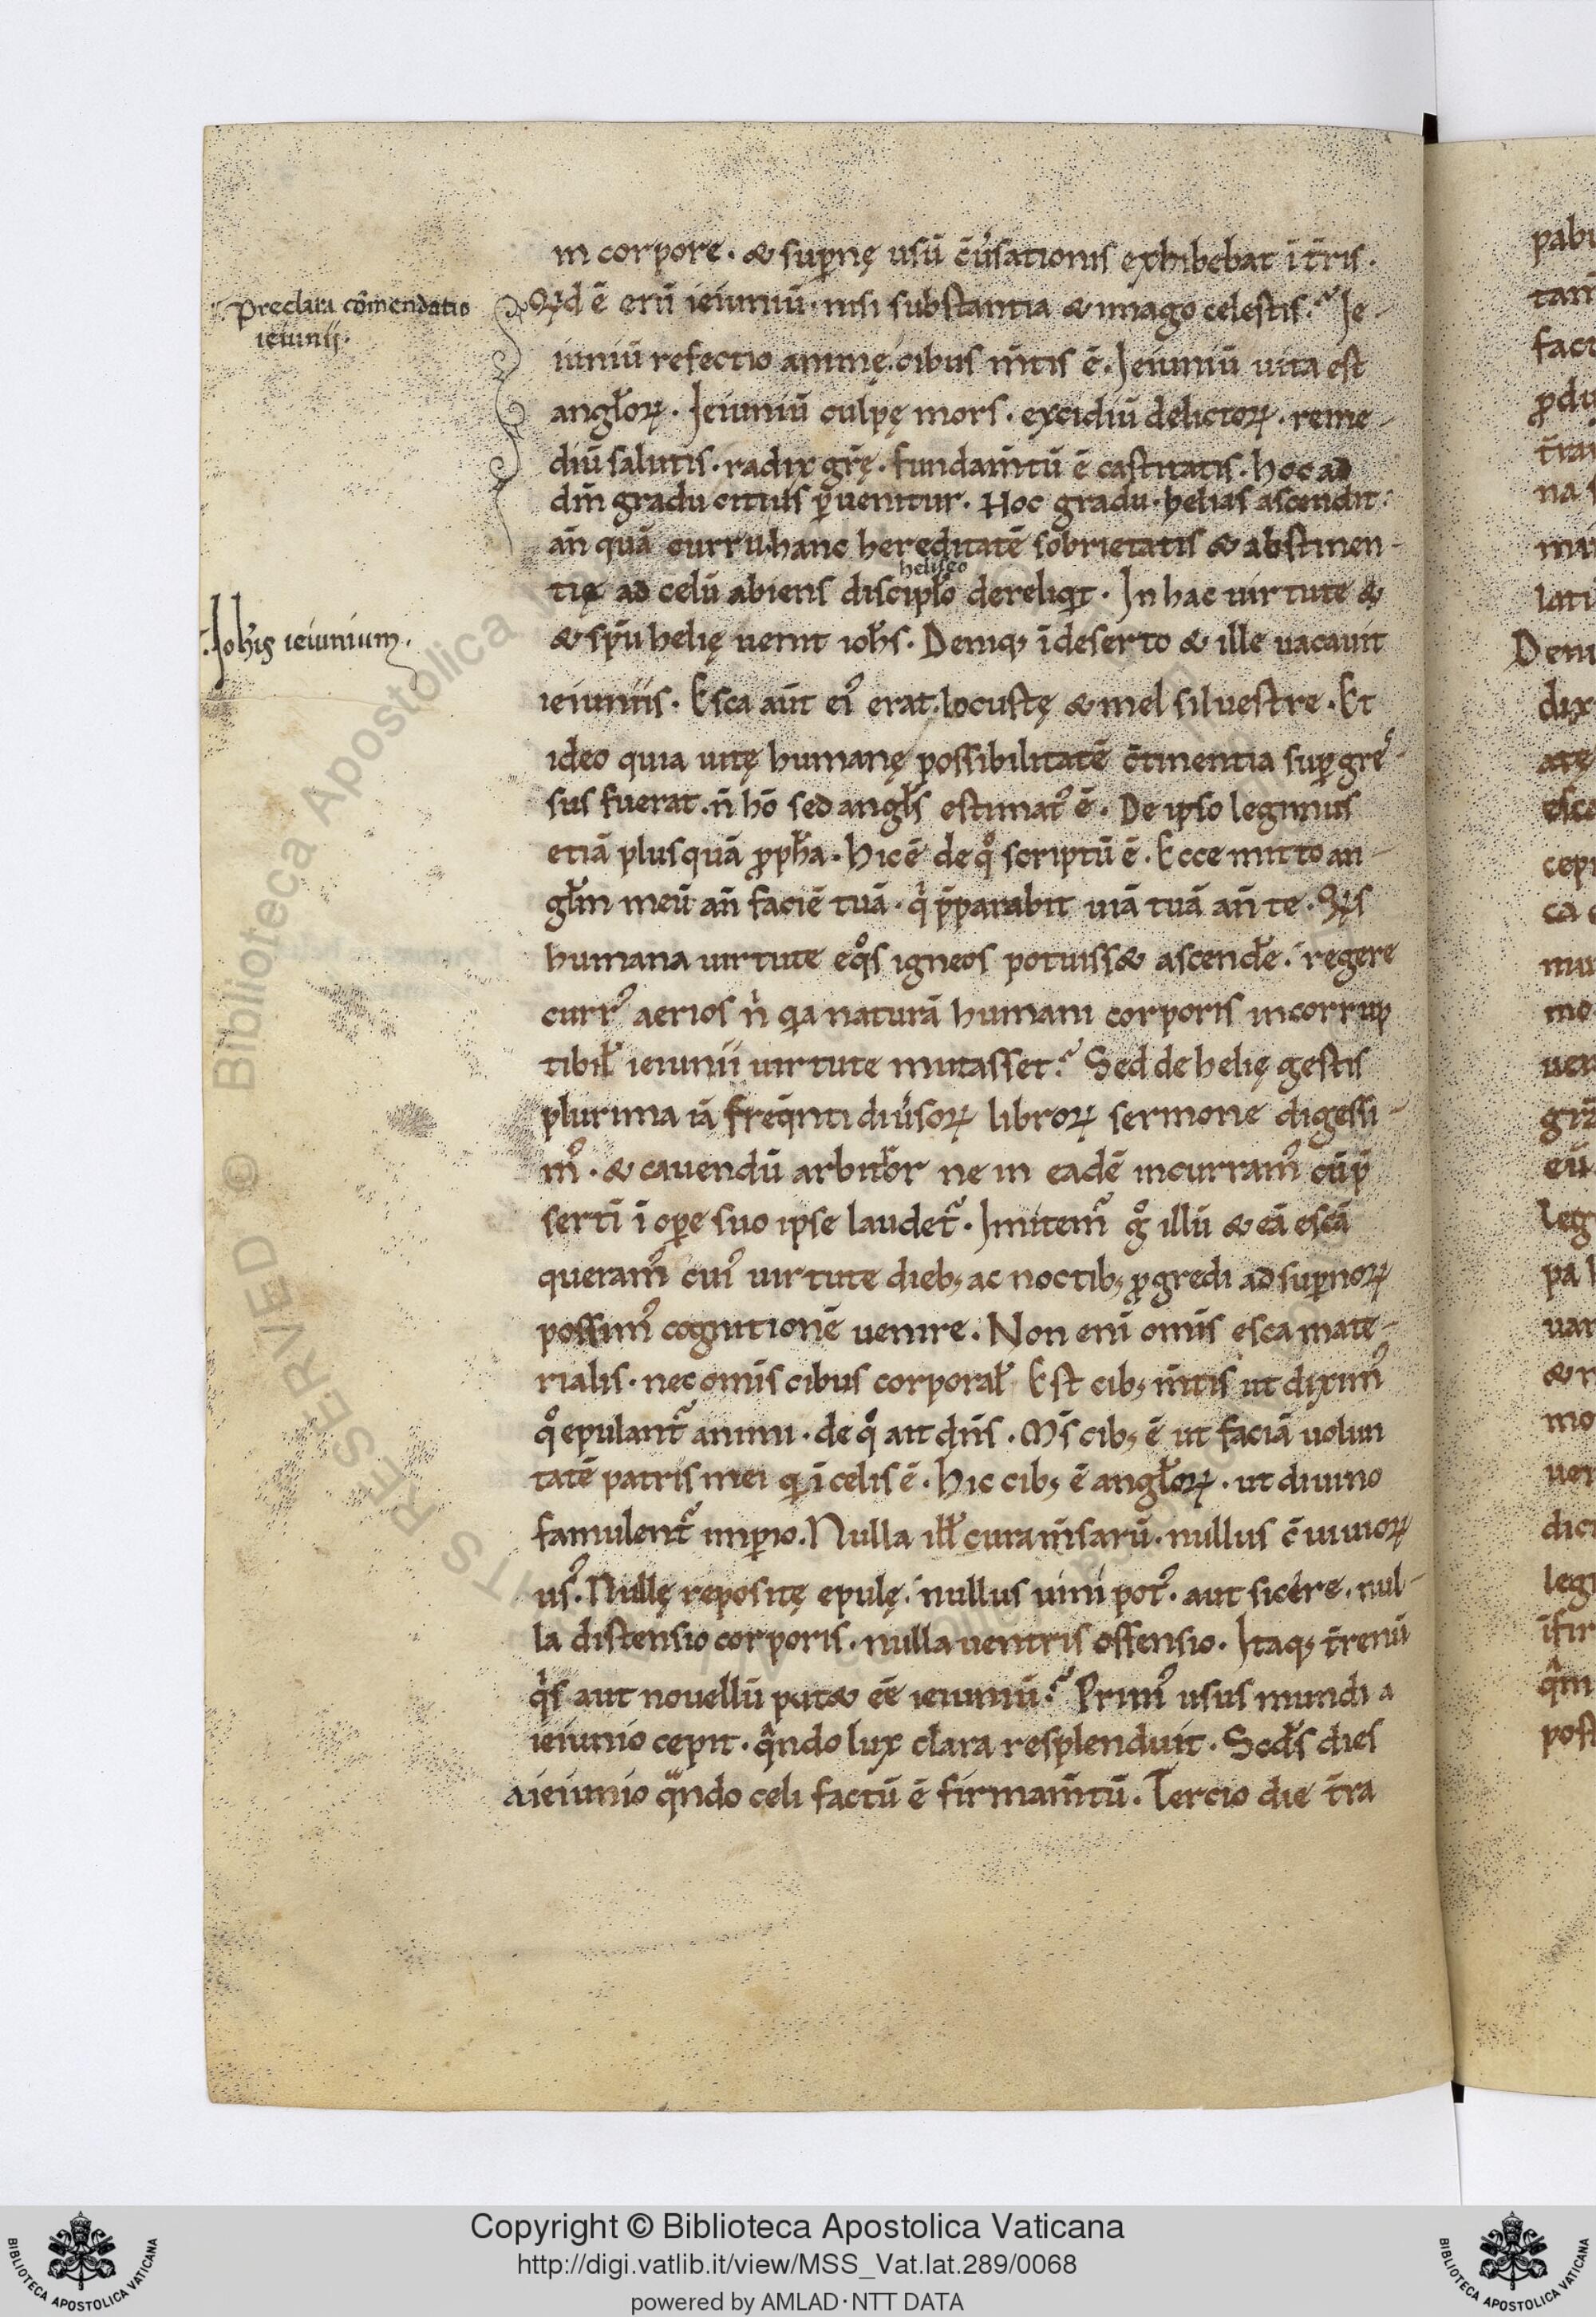 in corpore · & sup̱nę usū c̄u͛sationis exhibebat ī t̄ris ·
Preclara cōmendatio
ieiunii ·
Qꝫd ē enī ieiuniū · nisi substantia & imago celestis? Ie-
iuniū refectio animę · cibus m̄tis ē · Ieiuniū uita est
angl̓oꝝ · Ieiuniū culpę mors · excidiū delictoꝝ · reme-
diū salutis · radix gr̄ę · fundam̄tū ē castitatis · hoc ad
dm̄ gradu citius ꝑuenitur · Hoc gradu · helias ascendit ·
an̄ quā curru · hanc hereditatē sobrietatis & abstinen-
heliseo
tię ad celū abiens discipl̓o dereliqͥt · In hac uirtute &
Ioh̓is ieiunium ·
& sp̄u helię uenit ioh̓s · Deniqꝫ ī deserto & ille uacauit
ieiuniis · Esca aūt eiꝰ erat · locustę & mel siluestre · Et
ideo quia uitę humanę possibilitatē c̄tinentia suꝑgres-
sus fuerat · n̄ hō sed angl̓s estimatꝰ ē · De ipso legimus
etiā plusquā ꝓph̓a · Hic ē de qͦ scriptū ē · Ecce mitto an-
gl̓m meū an̄ faciē tuā · qͥ p̄parabit uiā tuā an̄ te · Qͥs
humana uirtute eqͦs igneos potuiss& ascende͛ · regere
currꝰ aerios nͥ qͥa naturā humani corporis incorrup
tibil̓ ieiunii uirtute mutasset? Sed de helię gestis
plurima iā freq̄nti diu͛soꝝ libroꝝ sermone digessi-
mꝰ · & cauendū arbitr̓or ne in eadē incurramꝰ cū p̄
sertī ī oꝑe suo ipse laudet᷑ · Imitem᷑ gͦ illū & eā escā
queramꝰ cuiꝰ uirtute diebꝫ ac noctibꝫ ꝓgredi ad suꝑnoꝝ
possimꝰ cognitionē uenire · Non enī om̄is esca mate-
rialis · nec om̄is cibus corporal̓ · Est cibꝫ m̄tis ut diximꝰ
qͦ epulant᷑ animi · de qͦ ait dn̄s · Ms̄ cibꝫ ē ut faciā uolun
tatē patris mei qͥ ī celis ē · Hic cibꝫ ē angl̓oꝝ · ut diuino
famulent᷑ imꝑio · Nulla ill̓ cura m̄sarū · nullus c̄uiuioꝝ
usꝰ · Nullę repositę epulę · nullus uini potꝰ · aut sicere · nul-
la distensio corporis · nulla uentris offensio · Itaqꝫ t̄renū
qͥs aut nouellū put& eē ieiuniū? Primꝰ usus mundi a
ieiunio cepit · qᷓndo lux clara resplenduit · Scd̓s dies
a ieiunio qᷓndo celi factū ē firmam̄tū · Tercio die t̄ra
Copyright © Biblioteca Apostolica Vaticana
http://digi.vatlib.it/view/MSS_Vat.lat.289/0068
powered by AMLAD·NTT DATA
BIBLIOTECA APOSTOLICA VATICANA
BIBLIOTECA APOSTOLICA VATICANA